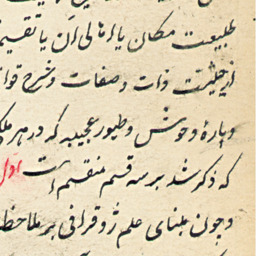 طبیعت مکان یا اهالی آن یا تقسیم
از حیثیت ذات و صفات و شرح قوا
وپارهٔ وحوش وطیور عجیبه که در هر ملک
که ذکر شد بر سه قسم منقسم است اول
وچون بنای علم ژوقرافی بر ملاحظه